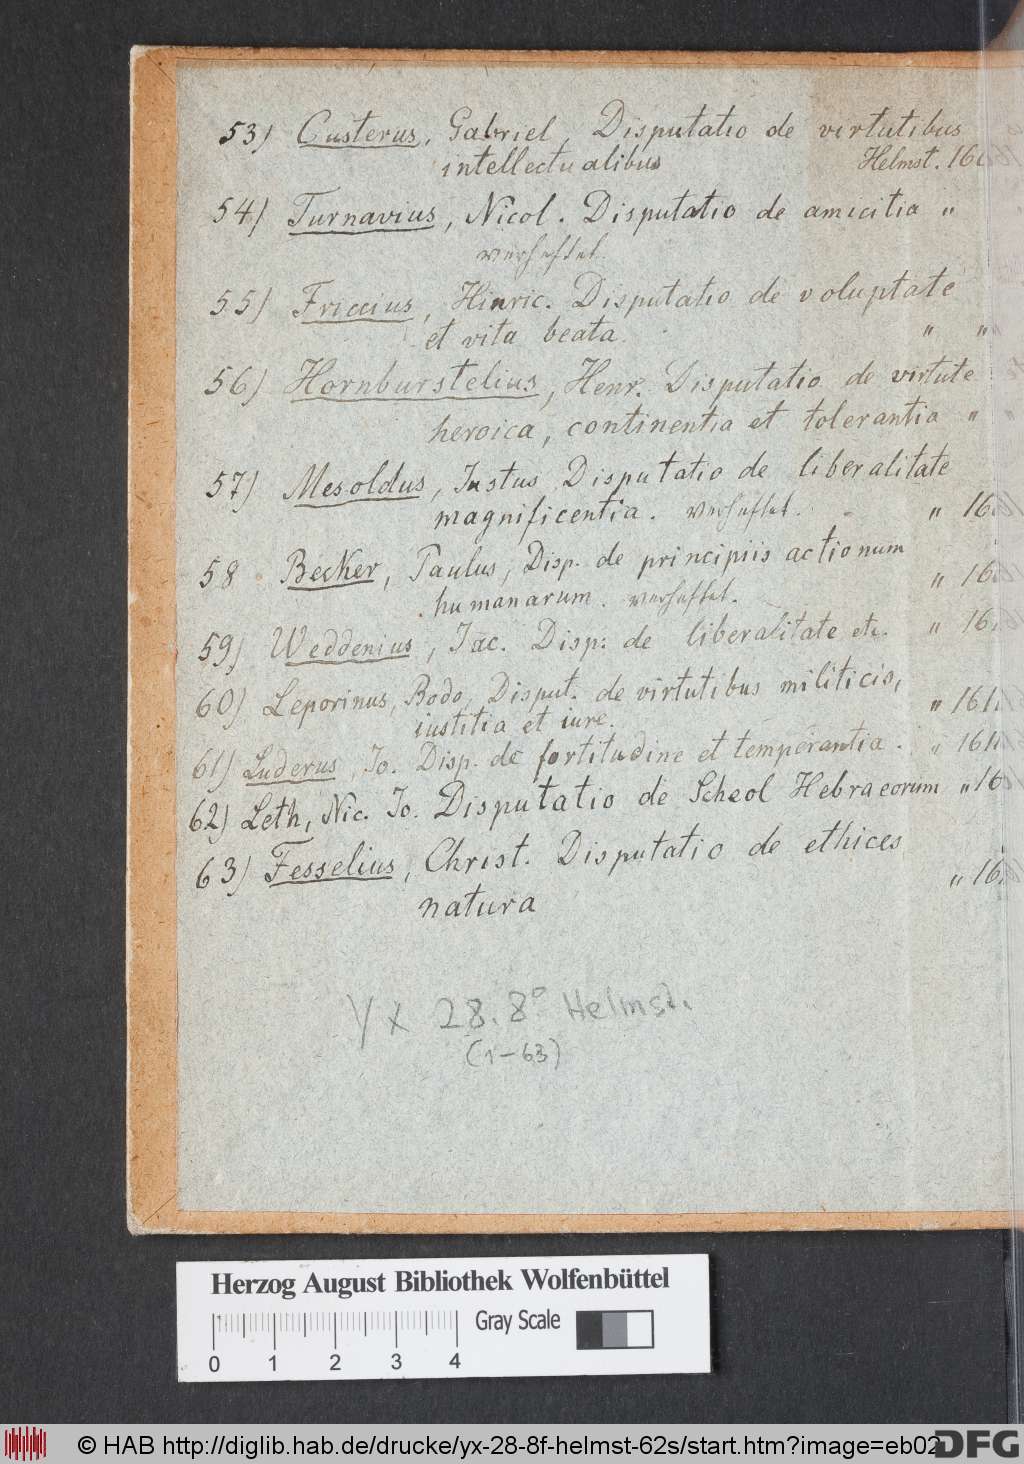 53) Custerus, Gabriel, Disputatio de virtutibus
intellectualibus Helmst. 16
54) Turnavius, Nicol. Disputatio de amicitia "
verheftet.
55) Friccius, Hinric. Disputatio de voluptate
et vita beata. " "
56) Hornburstelius, Henr. Disputatio de virtute
heroica, continentia et tolerantia "
57) Mesoldus, Justus Disputatio de liberalitate
magnificentia. verheftet. " 16
58 Becker, Paulus, Disp. de principiis actionum
humanarum. verheftet. " 16
59) Weddenius, Jac. Disp: de liberalitate etc. " 16
60) Leporinus, Bodo, Disput. de virtutibus militicis,
iustitia et iure. " 161
61) Luderus, Jo. Disp. de fortitudine et temperantia. " 161
62) Leth, Nic. Jo. Disputatio de Scheol Hebraeorum " 16
63) Fesselius, Christ. Disputatio de ethices
natura " 16
Yx 28. 8° Helmst.
(1-63)
Herzog August Bibliothek Wolfenbüttel
Gray Scale
0 1 2 3 4
© HAB http://diglib.hab.de/drucke/yx-28-8f-helmst-62s/start.htm?image=eb02
DFG